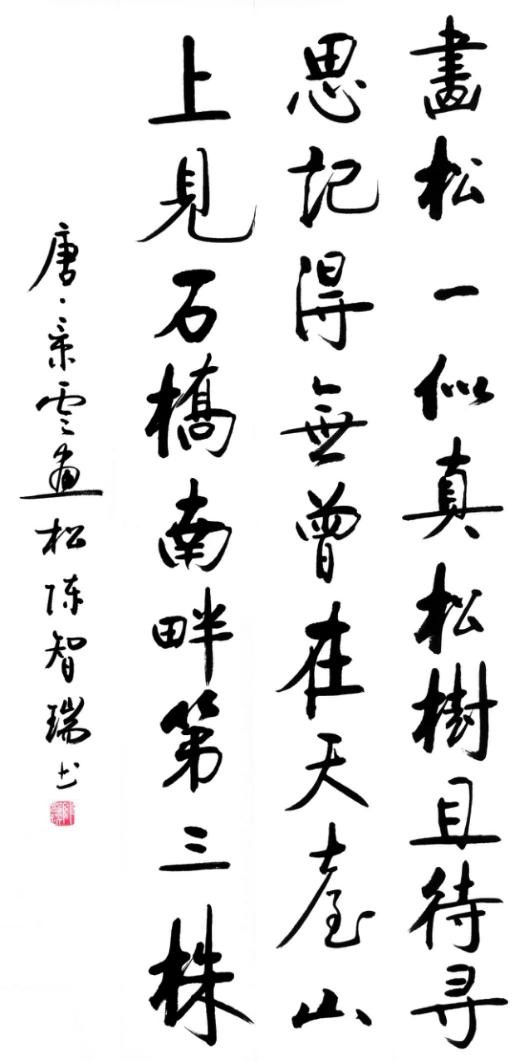 畫松一似真松樹且待尋
思記得無曾在天臺山
上見石橋南畔第三株
唐·景雲画松陈智瑞书